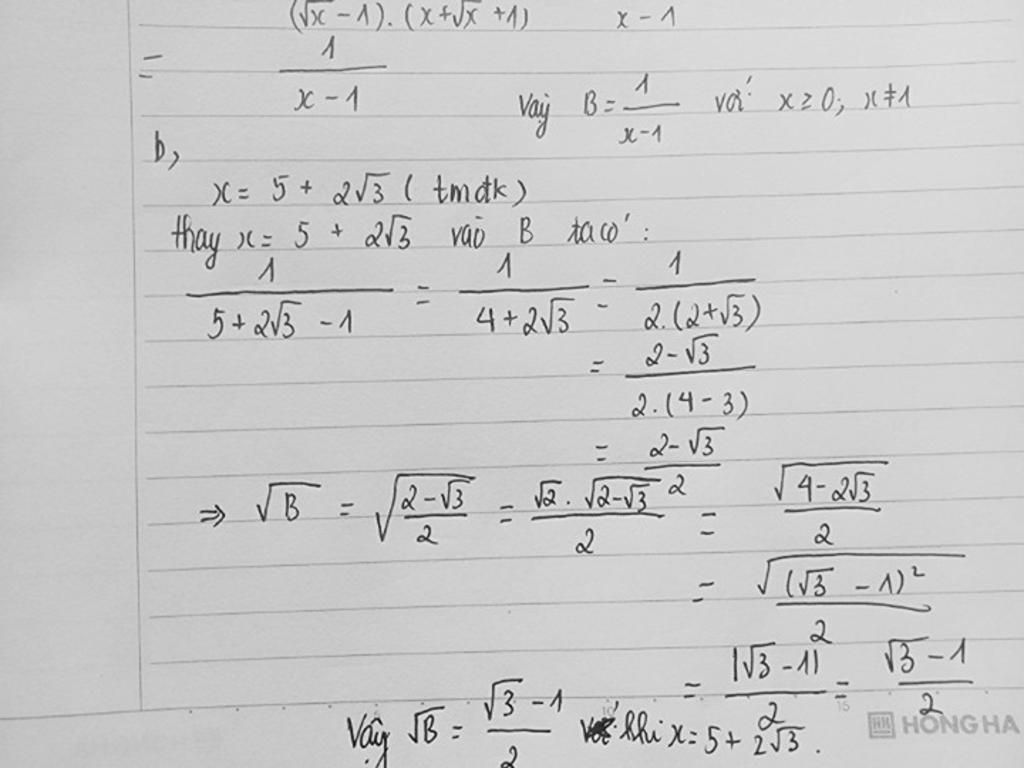 (√x - 1).(x+√x +1)    x - 1
= 1/(x - 1)
Vậy B = 1/(x-1) với x ≥ 0; x ≠ 1
b,
x = 5 + 2√3 ( tmđk )
thay x = 5 + 2√3 vào B ta có :
1/(5+2√3 -1) = 1/(4+2√3) = 1/(2.(2+√3))
= (2-√3)/(2.(4-3))
= (2-√3)/2
⇒ √B = √((2-√3)/2) = (√2 . √(2-√3))/2 = √(4-2√3)/2
= √((√3 - 1)²)/2
= |√3 -1|/2 = (√3 - 1)/2
Vậy √B = (√3 - 1)/2 khi x = 5 + 2√3 .
15
HONG HA